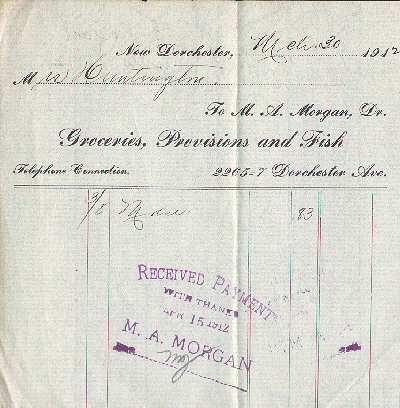 New Dorchester, Mch. 30 1912
Mrs Huntington
To M. A. Morgan, Dr.
Groceries, Provisions and Fish
Telephone Connection. 2265-7 Dorchester Ave.
83
RECEIVED PAYMENT
WITH THANKS
APR 15 1912
M. A. MORGAN